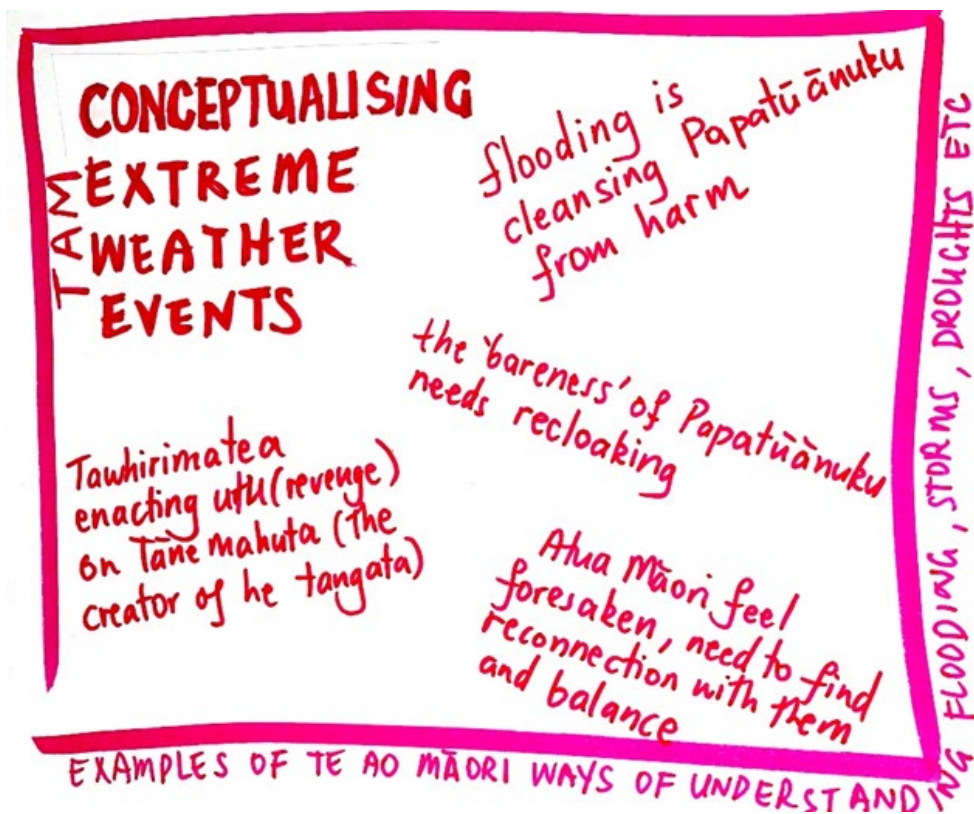 CONCEPTUALISING
EXTREME
WEATHER
EVENTS
TAM
flooding is
cleansing Papatūānuku
from harm
the 'bareness' of Papatūānuku
needs recloaking
Tawhirimatea
enacting utu (revenge)
on Tāne mahuta (the
creator of he tangata)
Atua Māori feel
foresaken, need to find
reconnection with them
and balance
EXAMPLES OF TE AO MĀORI WAYS OF UNDERSTANDING FLOODING, STORMS, DROUGHTS ETC